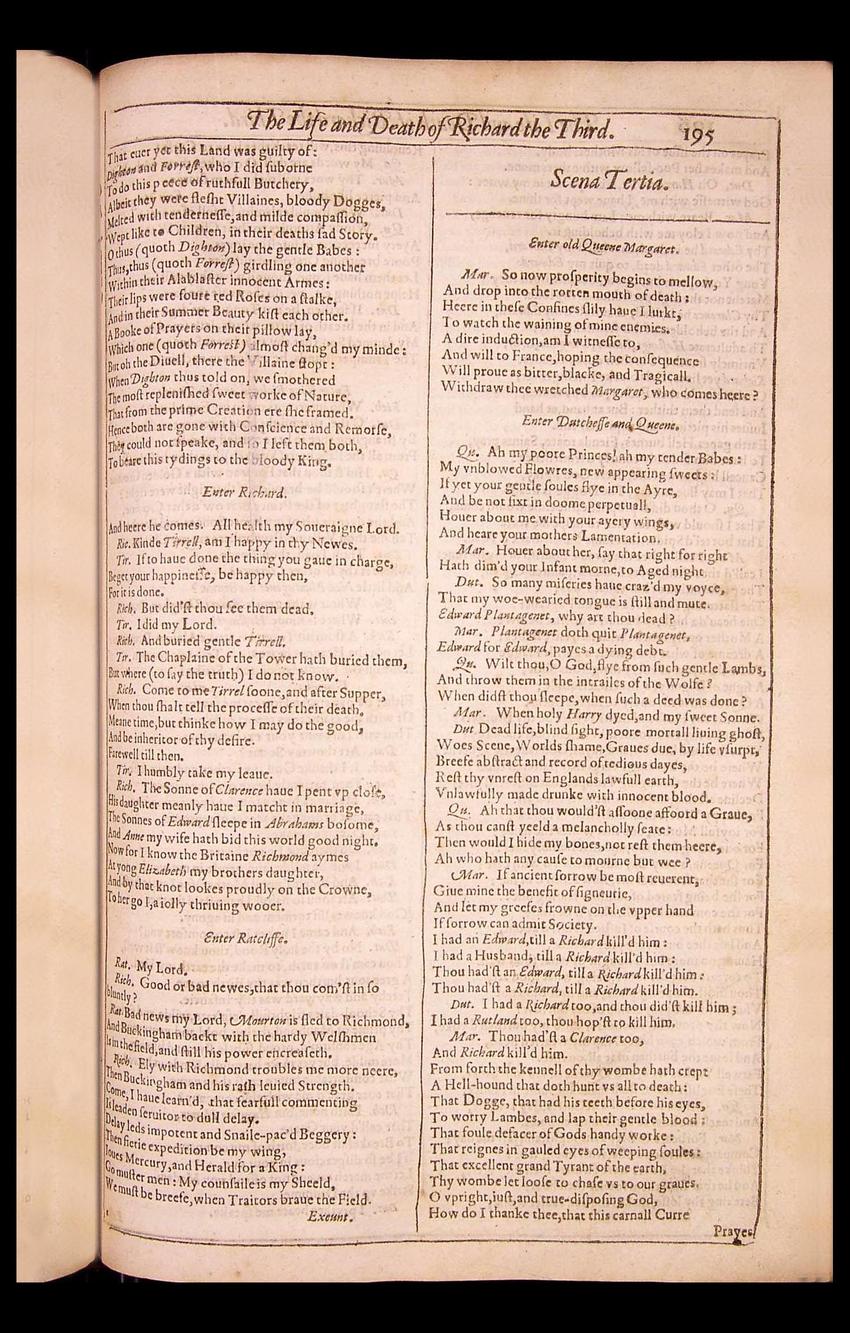 The Life and Death of Richard the Third. 195
That euer yet this Land was guilty of:
Dighton and Forreſt, who I did ſuborne
To do this peece of ruthfull Butchery,
Albeit they were fleſht Villaines, bloody Dogges,
Melted with tenderneſſe, and milde compaſſion,
Wept like to Children, in their deaths ſad Story.
O thus (quoth Dighton) lay the gentle Babes:
Thus, thus (quoth Forreſt) girdling one another
Within their Alablaſter innocent Armes:
Their lips were foure red Roſes on a ſtalke,
And in their Summer Beauty kiſt each other.
A Booke of Prayers on their pillow lay,
Which one (quoth Forreſt) almoſt chang'd my minde:
But oh the Diuell, there the Villaine ſtopt:
When Dighton thus told on, we ſmothered
The moſt repleniſhed ſweet worke of Nature,
That from the prime Creation ere ſhe framed.
Hence both are gone with Conſcience and Remorſe,
They could not ſpeake, and ſo I left them both,
To beare this tydings to the bloody King.
Enter Richard.
And heere he comes. All health my Soueraigne Lord.
Ric. Kinde Tirrell, am I happy in thy Newes.
Tir. If to haue done the thing you gaue in charge,
Beget your happineſſe, be happy then,
For it is done.
Rich. But did'ſt thou ſee them dead.
Tir. I did my Lord.
Rich. And buried gentle Tirrell.
Tir. The Chaplaine of the Tower hath buried them,
But where (to ſay the truth) I do not know.
Rich. Come to me Tirrel ſoone, and after Supper,
When thou ſhalt tell the proceſſe of their death,
Meane time, but thinke how I may do the good,
And be inheritor of thy deſire.
Farewell till then.
Tir. I humbly take my leaue.
Rich. The Sonne of Clarence haue I pent vp cloſe,
His daughter meanly haue I matcht in marriage,
The Sonnes of Edward ſleepe in Abrahams boſome,
And Anne my wife hath bid this world good night,
Now for I know the Britaine Richmond aymes
At yong Elizabeth my brothers daughter,
And by that knot lookes proudly on the Crowne,
To her go I, a iolly thriuing wooer.
Enter Ratcliffe.
Rat. My Lord.
Rich. Good or bad newes, that thou com'ſt in ſo
bluntly?
Rat. Bad news my Lord, Mourton is fled to Richmond,
And Buckingham backt with the hardy Welſhmen
Is in the field, and ſtill his power encreaſeth.
Rich. Ely with Richmond troubles me more neere,
Then Buckingham and his raſh leuied Strength.
Come, I haue learn'd, that fearfull commenting
Is leaden ſeruitor to dull delay.
Delay leds impotent and Snaile-pac'd Beggery:
Then fierie expedition be my wing,
Ioues Mercury, and Herald for a King:
Go muſter men: My counſaile is my Sheeld,
We muſt be breefe, when Traitors braue the Field.
Exeunt.
Scena Tertia.
Enter old Queene Margaret.
Mar. So now proſperity begins to mellow,
And drop into the rotten mouth of death:
Heere in theſe Confines ſlily haue I lurkt,
To watch the waining of mine enemies.
A dire induction, am I witneſſe to,
And will to France, hoping the conſequence
Will proue as bitter, blacke, and Tragicall.
Withdraw thee wretched Margaret, who comes heere?
Enter Dutcheſſe and Queene.
Qu. Ah my poore Princes! ah my tender Babes:
My vnblowed Flowres, new appearing ſweets:
If yet your gentle ſoules flye in the Ayre,
And be not fixt in doome perpetuall,
Houer about me with your ayery wings,
And heare your mothers Lamentation.
Mar. Houer about her, ſay that right for right
Hath dim'd your Infant morne, to Aged night.
Dut. So many miſeries haue craz'd my voyce,
That my woe-wearied tongue is ſtill and mute.
Edward Plantagenet, why art thou dead?
Mar. Plantagenet doth quit Plantagenet,
Edward for Edward, payes a dying debt.
Qu. Wilt thou, O God, flye from ſuch gentle Lambs,
And throw them in the intrailes of the Wolfe?
When didſt thou ſleepe, when ſuch a deed was done?
Mar. When holy Harry dyed, and my ſweet Sonne.
Dut Dead life, blind ſight, poore mortall liuing ghoſt,
Woes Scene, Worlds ſhame, Graues due, by life vſurpt,
Breefe abſtract and record of tedious dayes,
Reſt thy vnreſt on Englands lawfull earth,
Vnlawfully made drunke with innocent blood.
Qu. Ah that thou would'ſt aſſoone affoord a Graue,
As thou canſt yeeld a melancholly ſeate:
Then would I hide my bones, not reſt them heere,
Ah who hath any cauſe to mourne but wee?
Mar. If ancient ſorrow be moſt reuerent,
Giue mine the benefit of ſigneurie,
And let my greefes frowne on the vpper hand
If ſorrow can admit Society.
I had an Edward, till a Richard kill'd him:
I had a Husband, till a Richard kill'd him:
Thou had'ſt an Edward, till a Richard kill'd him:
Thou had'ſt a Richard, till a Richard kill'd him.
Dut. I had a Richard too, and thou did'ſt kill him;
I had a Rutland too, thou hop'ſt to kill him.
Mar. Thou had'ſt a Clarence too,
And Richard kill'd him.
From forth the kennell of thy wombe hath crept
A Hell-hound that doth hunt vs all to death:
That Dogge, that had his teeth before his eyes,
To worry Lambes, and lap their gentle blood:
That foule defacer of Gods handy worke:
That reignes in gauled eyes of weeping ſoules:
That excellent grand Tyrant of the earth,
Thy wombe let looſe to chaſe vs to our graues.
O vpright, iuſt, and true-diſpoſing God,
How do I thanke thee, that this carnall Curre
Prayes